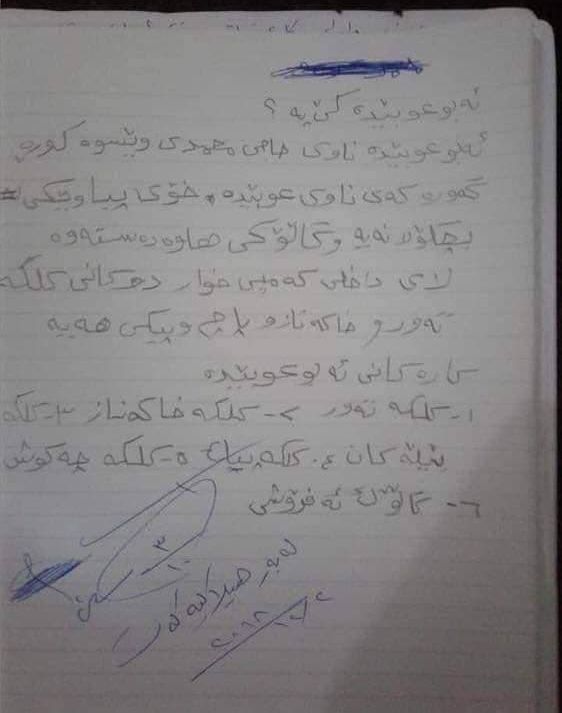 ئەبو عوبێدە کێ یە ؟
ئەبو عوبێدە ناوی حاجی محمدی وێسوە کورە
گەورە کەی ناوی عوبێدە، خۆی پیاوێکی
بچکۆلانەیە وگاڵۆکی هاوەدەستەوە
لای داخلی کەمپی خوار دوکانی کلکە
تەورو خاکەنازو پاچ وپیکی هەیە
کارەکانی ئەبو عوبێدە
١- کلکە تەور ٢- کلکە خاکەناز ٣- کلکە
پێلەکان ٤. کلکە پیک ٥- کلکە چەکوش
٦- گاڵۆک ئەفرۆشی
٣
١٠
لەبەر
٢٠١٨/١٢/٢